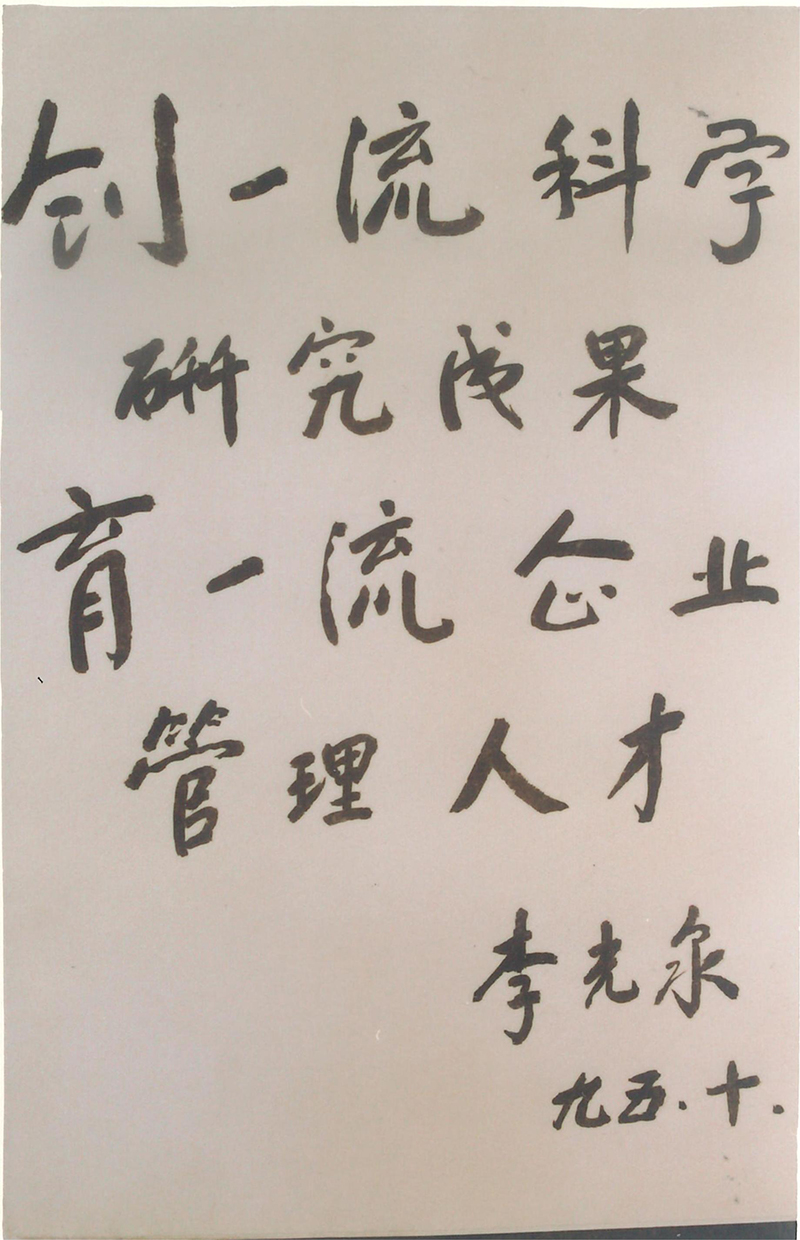 创一流科学
研究成果
育一流企业
管理人才
李光泉
九五.十.